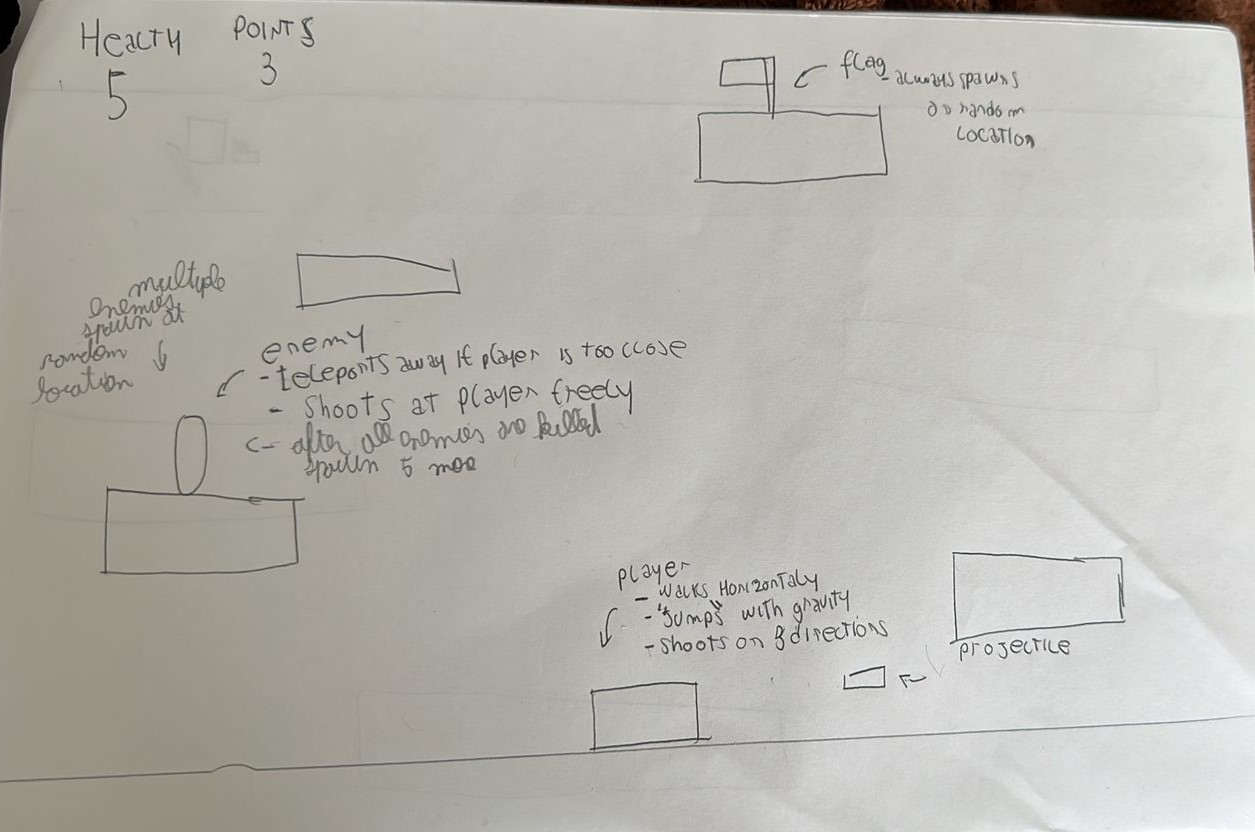 HEALTH POINTS
5 3
flag - always spawns
on random
location
multiple
enemies
spawn at
random
location
enemy
- teleports away if player is too close
- shoots at player freely
<- after all enemies are killed
spawn 5 moe
player
- walks Horizontaly
- "Jumps" with gravity
- shoots on 8 directions
projectile